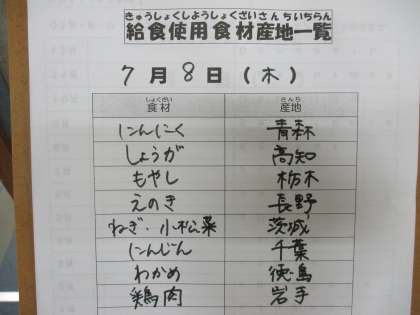 きゅうしょくしようしょくざいさんちいちらん
給食使用食材産地一覧
7月8日(木)
しょくざい さんち
食材 産地
にんにく 青森
しょうが 高知
もやし 栃木
えのき 長野
ねぎ・小松菜 茨城
にんじん 千葉
わかめ 徳島
鶏肉 岩手